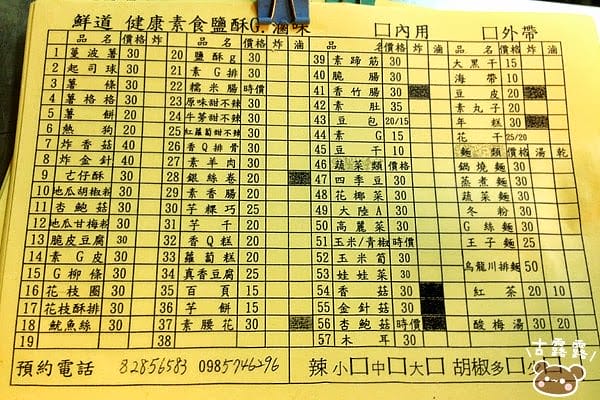 鮮道 健康素食鹽酥G.滷味 □內用 □外帶
品名 價格 炸 品名 價格 炸 滷 品名 價格 炸 滷 品名 價格 炸 滷
1 薯波薯 30 20 鹽酥g 30 39 素蹄筋 30 大黑干 15
2 起司球 30 21 素G排 30 40 脆腸 30 海帶 10
3 薯條 30 22 糯米腸 時價 41 香竹腸 30 豆皮 20
4 薯格格 30 23 原味甜不辣 30 42 素肚 35 素丸子 20
5 薯餅 20 24 牛蒡甜不辣 30 43 豆包 20/15 年糕 30
6 熱狗 20 25 紅蘿蔔甜不辣 30 44 素G 15 花干 25/20
7 炸香菇 40 26 香Q排骨 30 45 豆干 10 麵類 價格 湯 乾
8 炸金針 40 27 素羊肉 30 46 蔬菜類 價格 鍋燒麵 30
9 古仔酥 30 28 銀絲卷 20 47 四季豆 30 蒸煮麵 30
10 地瓜胡椒粉 30 29 素香腸 20 48 花椰菜 30 蔬菜麵 30
11 杏鮑菇 30 30 芋粿巧 25 49 大陸A 30 冬粉 30
12 地瓜甘梅粉 30 31 芋干 20 50 高麗菜 30 G絲麵 30
13 脆皮豆腐 30 32 香Q糕 20 51 玉米/青椒 時價 王子麵 25
14 素G皮 30 33 蘿蔔糕 20 52 玉米筍 30
15 G柳條 30 34 真香豆腐 25 53 娃娃菜 30 烏龍川排麵 50
16 花枝圈 30 35 百頁 15 54 香菇 30 紅茶 20 10
17 花枝酥排 30 36 芋餅 15 55 金針菇 30
18 魷魚絲 30 37 素腰花 30 56 杏鮑菇 時價 酸梅湯 30 20
19 38 57 木耳 30
預約電話 82856583 0985746296 辣 小□中□大□ 胡椒多□少□
古露露